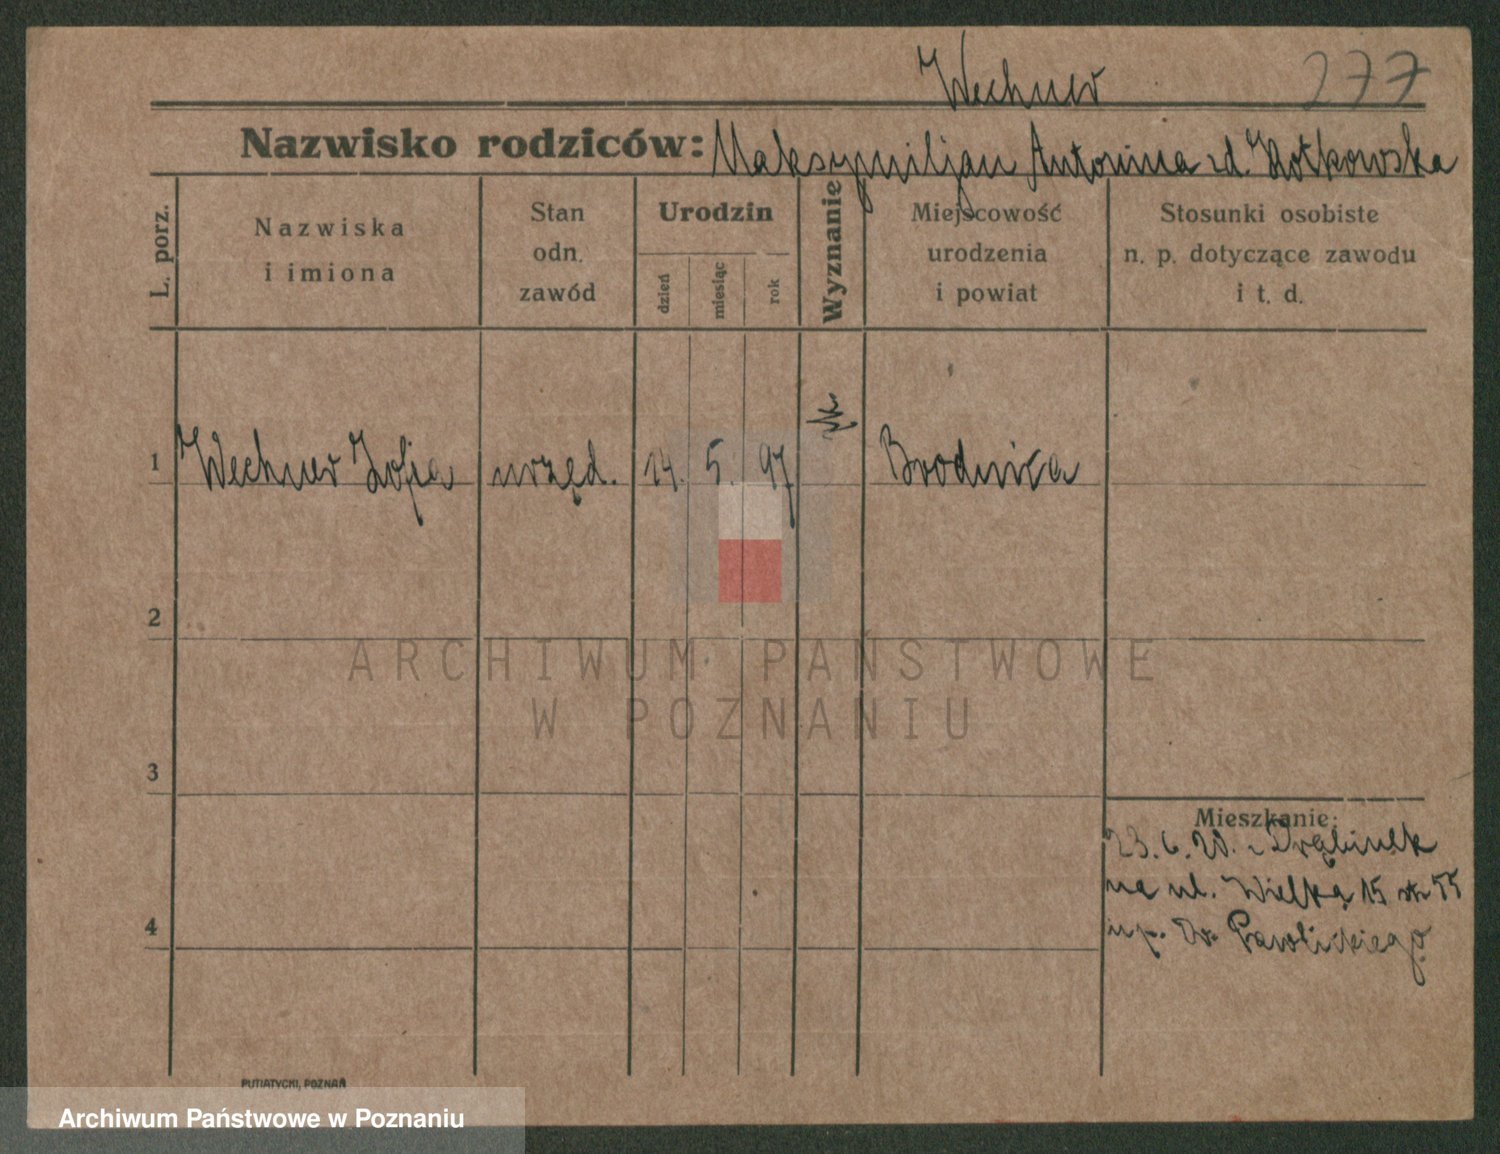 Wechner 277
Nazwisko rodziców: Maksymiljan Antonina zd. Kotkowska
L. porz.
Nazwiska
i imiona
Stan
odn.
zawód
Urodzin
dzień
miesiąc
rok
Wyznanie
Miejscowość
urodzenia
i powiat
Stosunki osobiste
n. p. dotyczące zawodu
i t. d.
1 Wechner Zofja urzęd. 14. 5. 97 rk. Brodnica
2
3
4
Mieszkanie:
23.6.20. z
na ul. Wielką 15 55
up.
PUTIATYCKI, POZNAŃ
ARCHIWUM PAŃSTWOWE
W POZNANIU
Archiwum Państwowe w Poznaniu